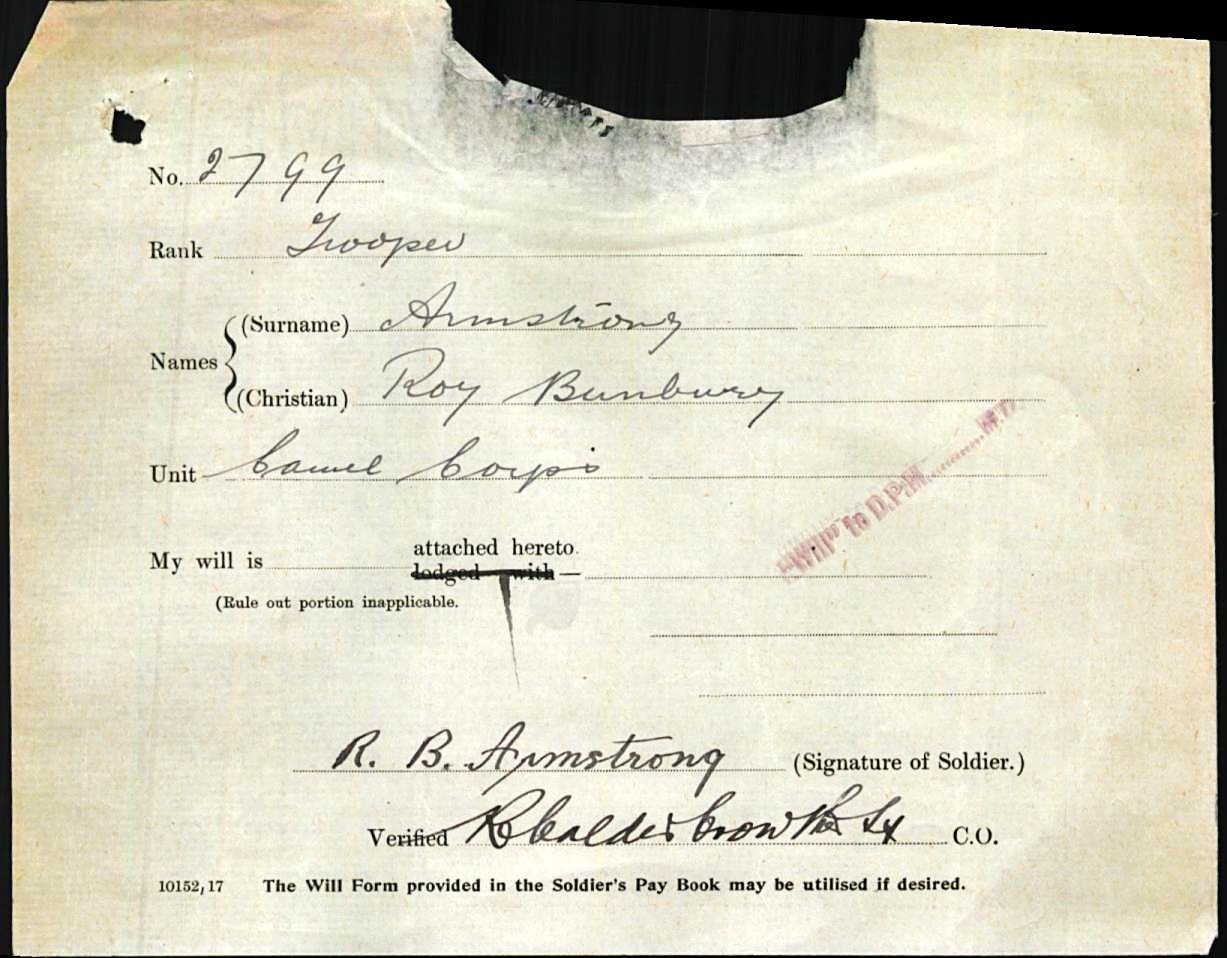 No. 2799
Rank Trooper
Names
(Surname) Armstrong
(Christian) Roy Bunbury
Unit Camel Corps
"Will" to D.P.H.
attached hereto.
My will is
lodged with —
(Rule out portion inapplicable.
R. B. Armstrong (Signature of Soldier.)
Verified C.O.
10152/17 The Will Form provided in the Soldier's Pay Book may be utilised if desired.